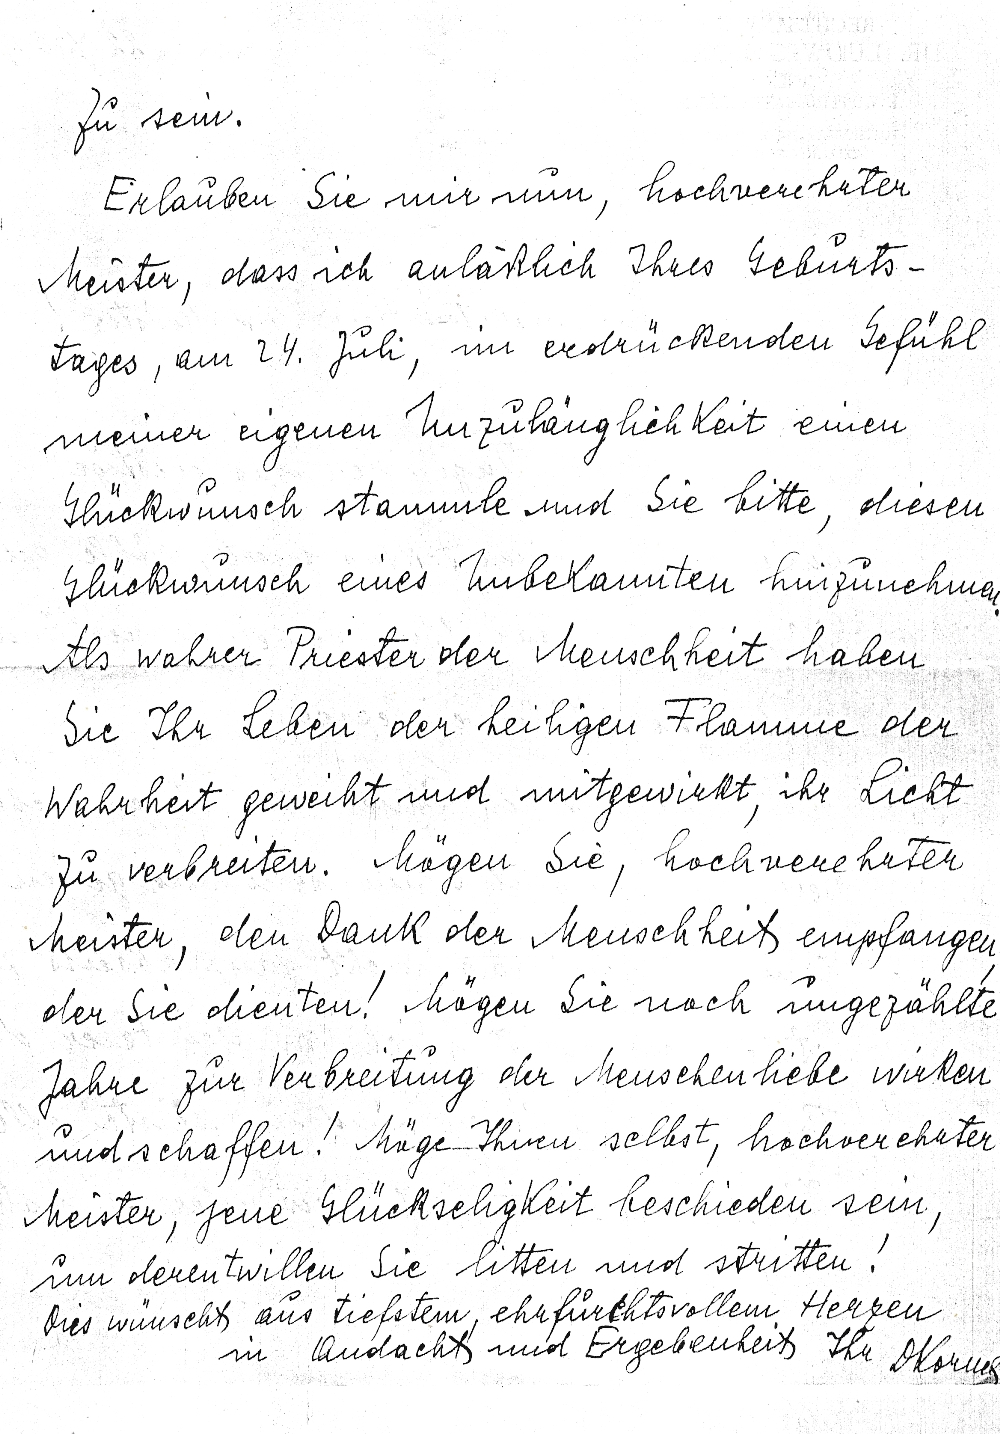 zu sein.
Erlauben Sie mir nun, hochverehrter
Meister, dass ich anläßlich Ihres Geburts-
tages, am 24. Juli, im erdrückenden Gefühl
meiner eigenen Unzulänglichkeit einen
Glückwunsch stammle und Sie bitte, diesen
Glückwunsch eines Unbekannten hinzunehmen.
Als wahrer Priester der Menschheit haben
Sie Ihr Leben der heiligen Flamme der
Wahrheit geweiht und mitgewirkt, ihr Licht
zu verbreiten. Mögen Sie, hochverehrter
Meister, den Dank der Menschheit empfangen,
der Sie dienten! Mögen Sie noch ungezählte
Jahre zur Verbreitung der Menschenliebe wirken
und schaffen! Möge Ihnen selbst, hochverehrter
Meister, jene Glückseligkeit beschieden sein,
um derentwillen Sie litten und stritten!
Dies wünscht aus tiefstem, ehrfurchtsvollem Herzen
in Andacht und Ergebenheit Ihr